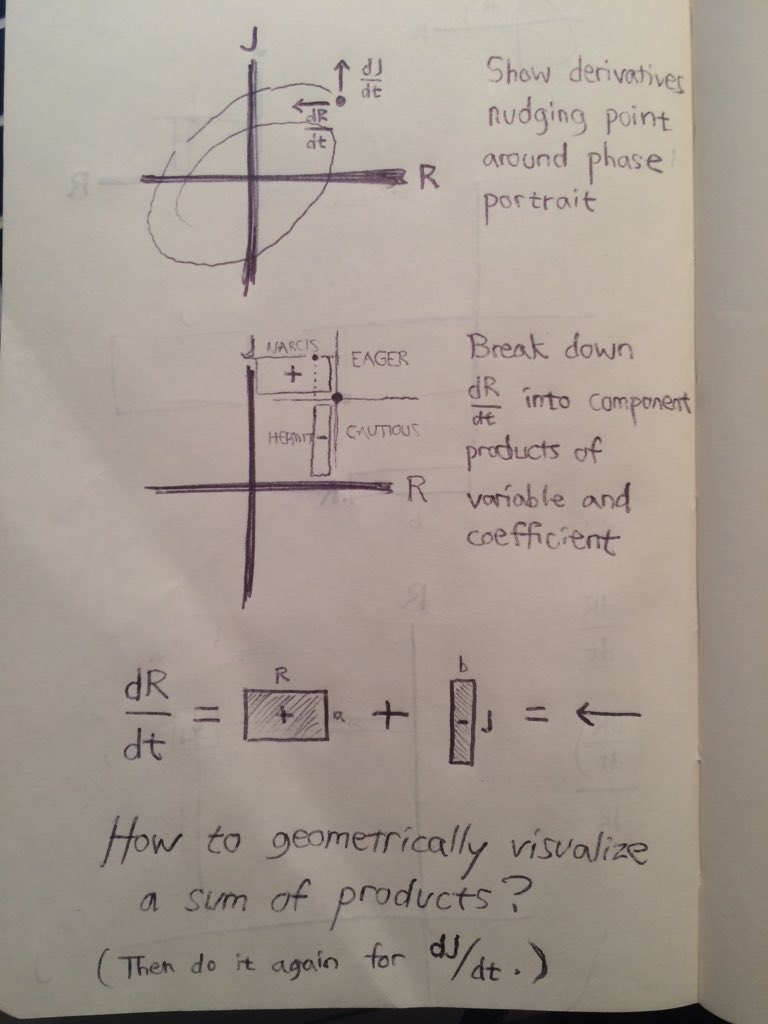 J
dJ
dt
dR
dt
R
Show derivatives
nudging point
around phase
portrait
J
NARCIS
EAGER
+
HERMIT
-
CAUTIOUS
R
Break down
dR
dt into component
products of
variable and
coefficient
dR
dt
=
R
+
a
+
b
-
J
=
How to geometrically visualize
a sum of products?
(Then do it again for dJ/dt.)